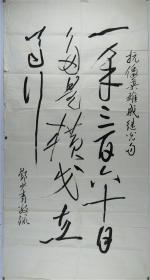 抗倭英雄戚继光句
一年三百六十日
多是横戈马
上行